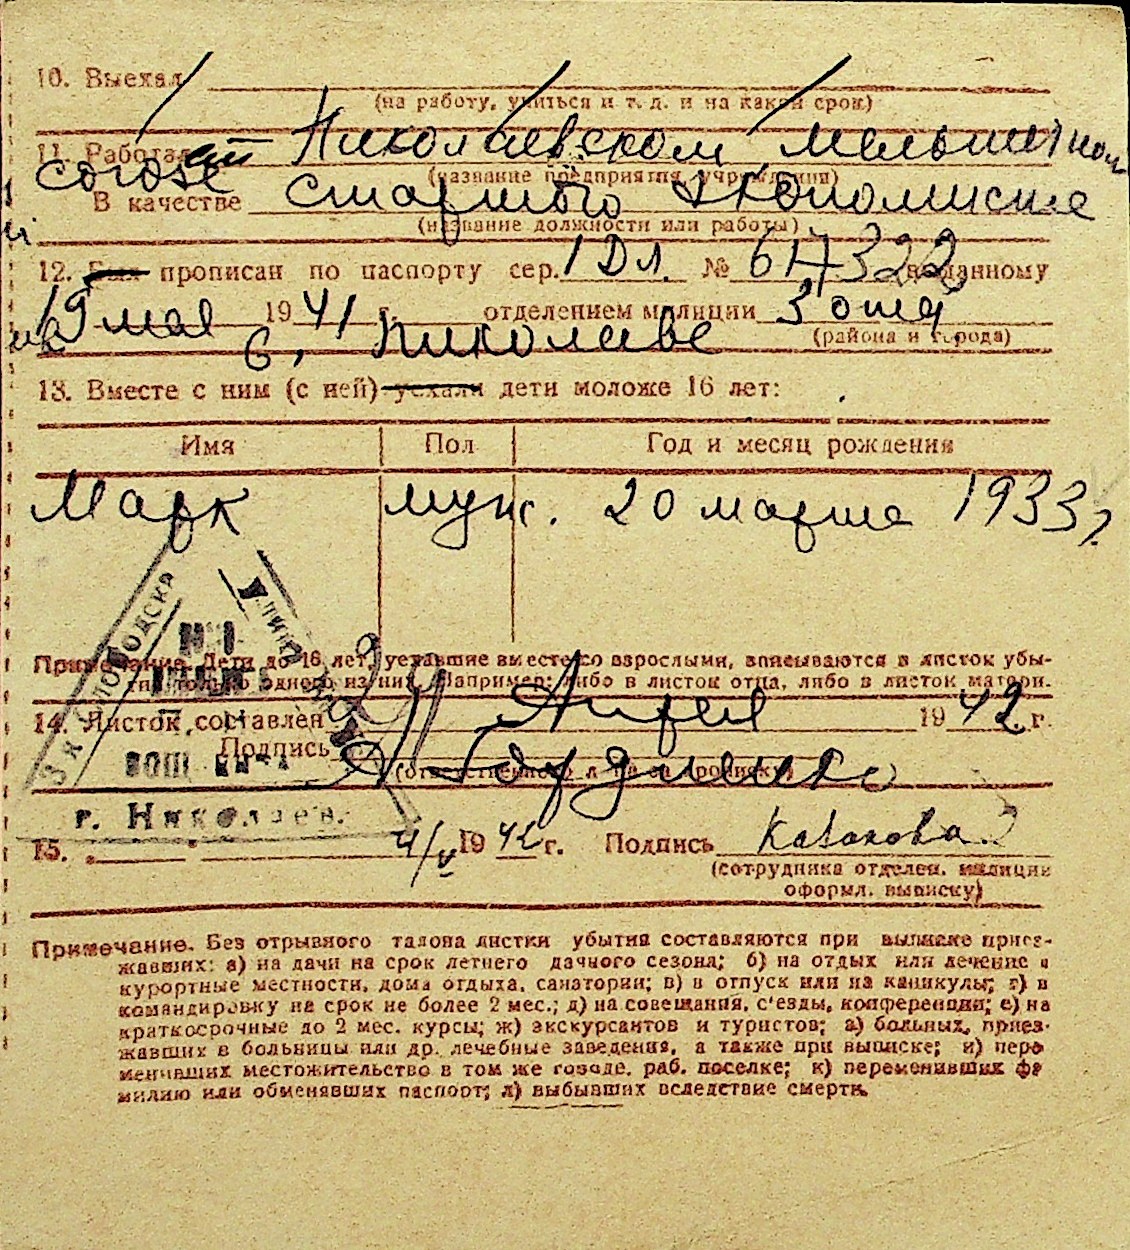 10. Выехал
(на работу, учиться и т. д. и на какой срок)
11. Работал Николаевском
союзе
(название предприятия, учреждения)
В качестве старшого экономиста
(название должности или работы)
12. Был прописан по паспорту сер. 1 Дл. № 617322 выданному
19 мая 1941 г. отделением милиции 3 отд
(района и города)
в г. Николаеве
13. Вместе с ним (с ней) уехали дети моложе 16 лет:
Имя Пол Год и месяц рождения
Марк муж. 20 марта 1933 г.
Примечание. Дети до 16 лет, уехавшие вместе со взрослыми, вписываются в листок убы-
тия только одного из них. Например: либо в листок отца, либо в листок матери.
14. Листок составлен 24 Апреля 1942 г.
Подпись
(ответственного л-ца за прописку)
г. Николаев.
15. 4/V 1942 г. Подпись Казакова
(сотрудника отделен. милиции
оформл. выписку)
Примечание. Без отрывного талона листки убытия составляются при выписке приез-
жавших: а) на дачи на срок летнего дачного сезона; б) на отдых или лечение в
курортные местности, дома отдыха, санатории; в) в отпуск или на каникулы; г) в
командировку на срок не более 2 мес.; д) на совещания, с'езды, конференции; е) на
краткосрочные до 2 мес. курсы; ж) экскурсантов и туристов; з) больных, приез-
жавших в больницы или др. лечебные заведения, а также при выписке; и) пере
менивших местожительство в том же городе, раб. поселке; к) переменивших фа
милию или обменявших паспорт; л) выбывших вследствие смерти.